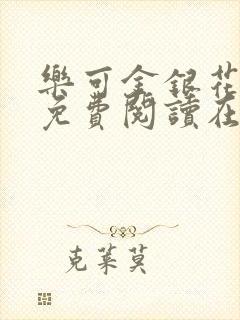 樂可金銀花
免費閱讀在
克萊莫